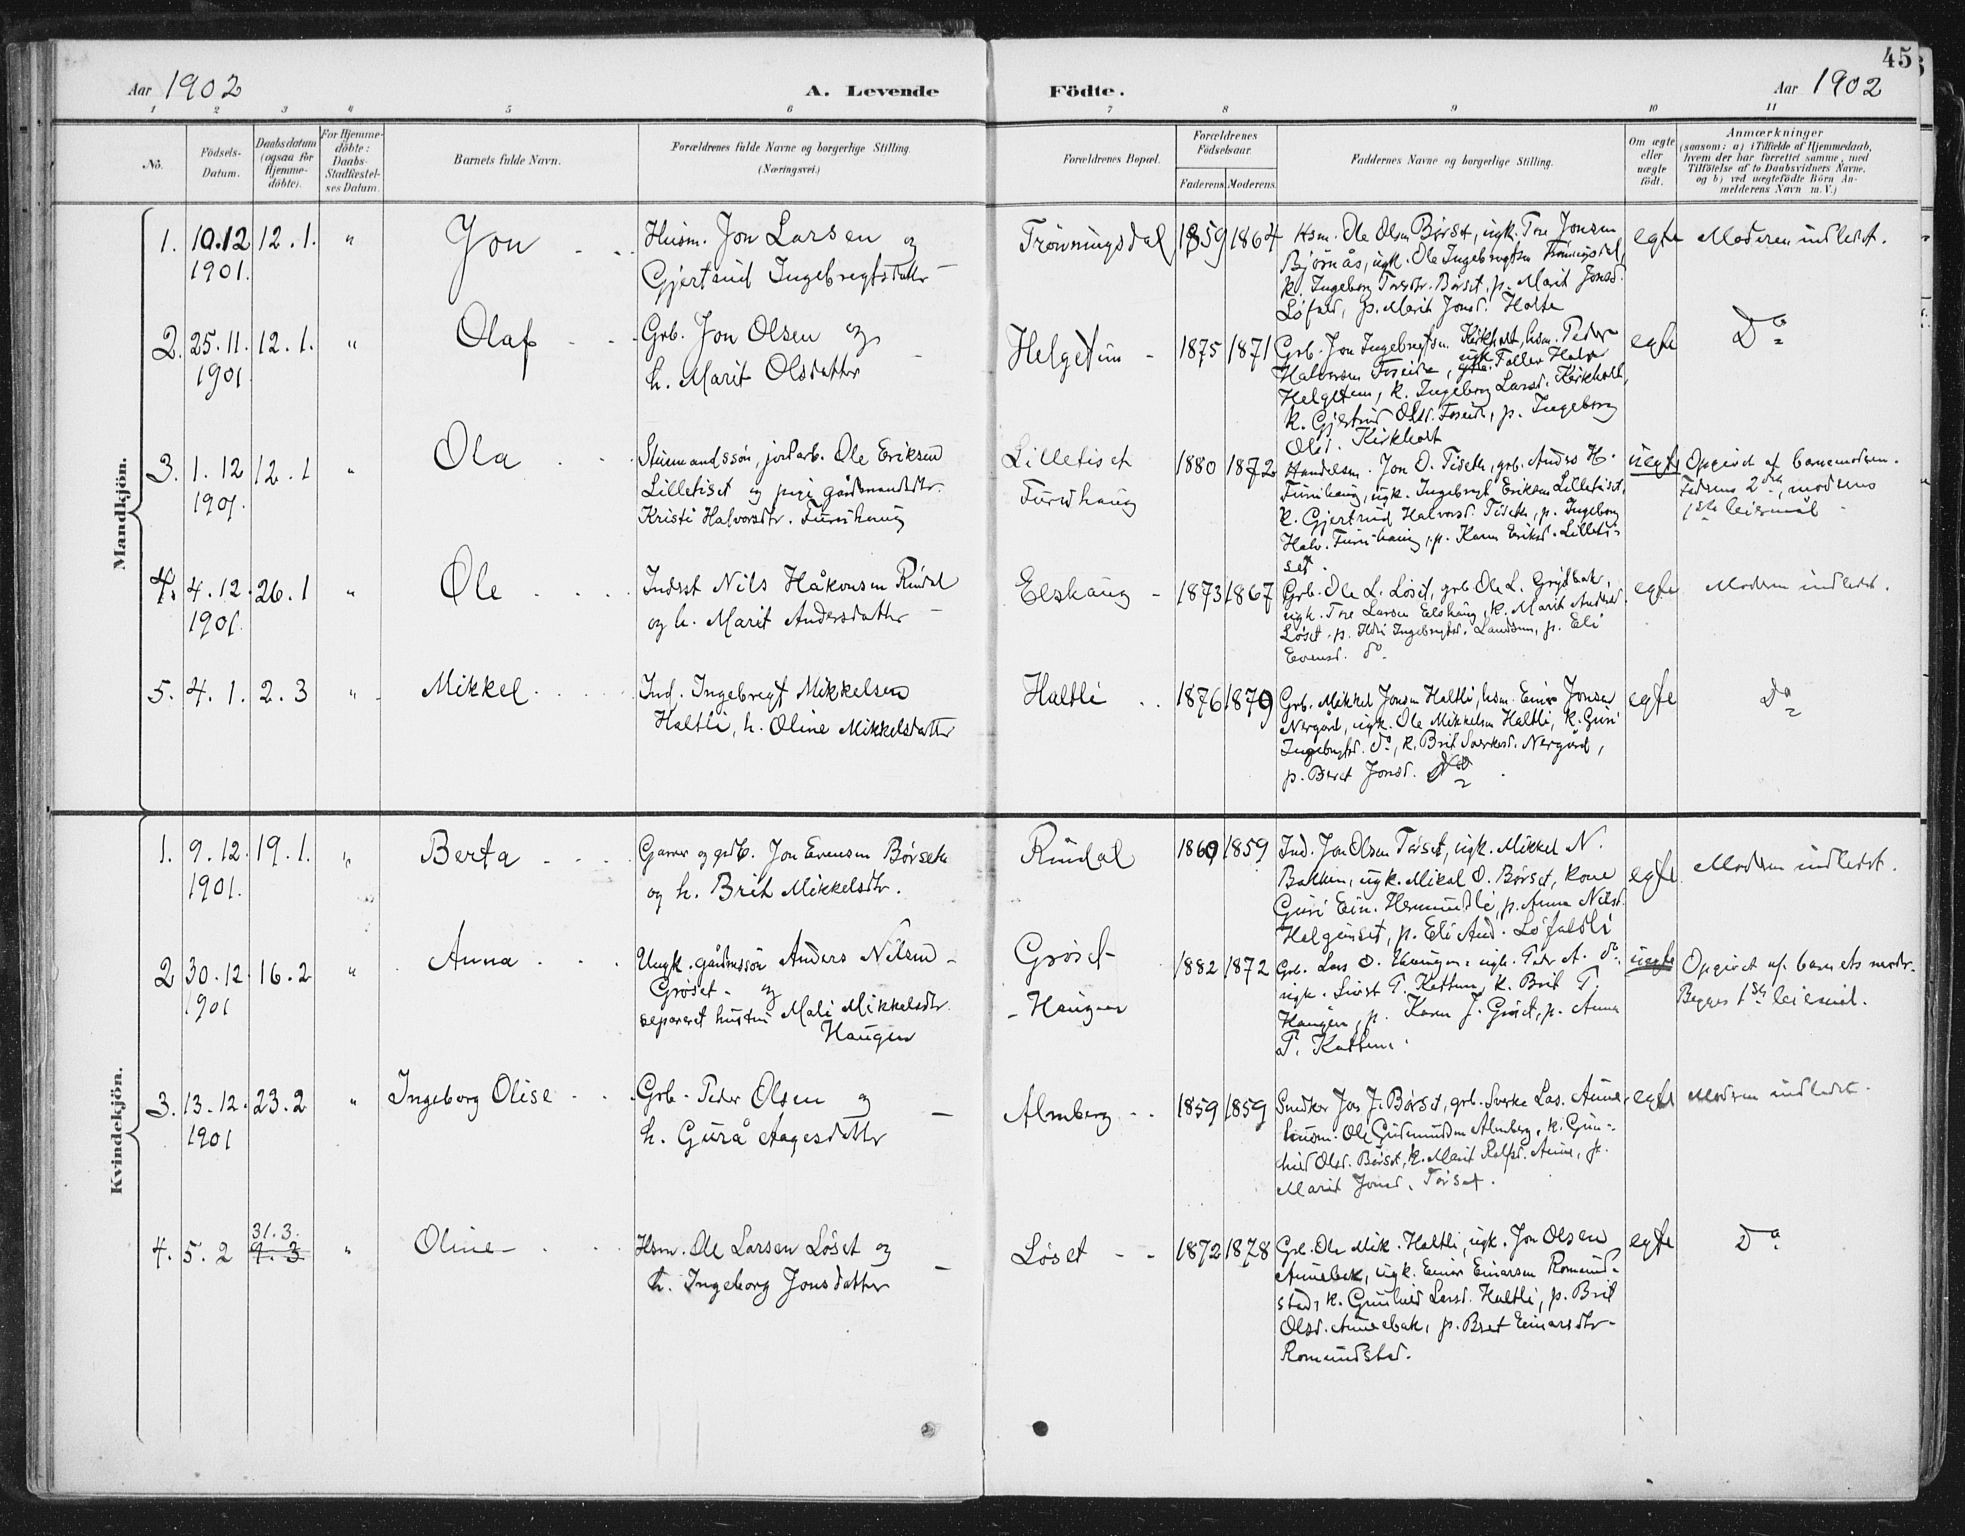 45
Aar 1902
A. Levende Födte.
Aar 1902
1 2 3 4 5 6 7 8 9 10 11
Nô.
Födsels-Datum.
Daabsdatum (ogsaa for Hjemme-döbte).
For Hjemme-döbte: Daabs-Stadfæstel-ses Datum.
Barnets fulde Navn.
Forældrenes fulde Navne og borgerlige Stilling. (Næringsvei.)
Forældrenes Bopæl.
Forældrenes Födselsaar.
Faderens. Moderens.
Faddernes Navne og borgerlige Stilling.
Om ægte eller uægte födt.
Anmærkninger
(saasom: a) i Tilfælde af Hjemmedaab,
hvem der har forrettet samme, med
Tilföielse af to Daabsvidners Navne,
og b) ved uægtefödte Börn An-
melderens Navn m. V.)
Mandkjön.
1. 10.12 1901. 12.1. " Jon
Husm. Jon Larsen og
Gjertrud Ingebregtsdatter
Trønningsdal 1859 1864
Hsm. Ole Olsen Børset, ugk. Tore Jonsen
Bjørnås, ugk. Ole Ingebregtsen Trønningsdal,
k. Ingeborg Toresdr. Børset, p. Marit Jonsd.
Løfald, p. Marit Jonsd. Holte
egte Moderen indledet.
2. 25.11. 1901. 12.1. " Olaf
Grb. Jon Olsen og
h. Marit Olsdatter
Helgetun 1875 1871
Grb. Jon Ingebregtsen Kirkholt, hsm. Peder
Halvorsen Foseide, ugk. Halvor
Helgetun, k. Ingeborg Larsd. Kirkholt,
k. Gjertrud Olsd. Foseide, p. Ingeborg
Olsd. Kirkholt
egte Do
3. 1.12 1901. 12.1 " Ola
jordarb. Ole Eriksen
Lilletiset og pige gårdmandsdtr.
Kristi Halvorsdtr. Furuhaug
Lilletiset
Furuhaug
1880 1872
Handelsm. Jon O. Tiseth, grb. Anders H.
Furuhaug, ugk. Ingebrigt Eriksen Lilletiset,
k. Gjertrud Halvorsd. Tiseth, p. Ingeborg
Halv. Furuhaug, p. Karen Eriksd. Lilleti-
set.
uegte Opgivet af barnemoderen.
Faderens 2det, moderens
1ste leiermål
4. 4.12. 1901. 26.1 " Ole
Inderst Nils Håkonsen Rindal
og h. Marit Andersdatter
Elshaug 1873 1867
Grb. Ole L. Løset, grb. Ole L. Grytbak,
ugk. Tore Larsen Elshaug, k. Marit Andersd.
Løset, p. Ingebrigtsd. Landsem, p. Eli
Evensd. do.
egte Moderen indledet.
5. 4.1. 2.3 " Mikkel
Ind. Ingebregt Mikkelsen
Haltli, h. Oline Mikkelsdatter
Haltli 1876 1879
Grb. Mikkel Jonsen Haltli, hsm. Einar Jonsen
Nergård, ugk. Ole Mikkelsen Haltli, k. Guri
Ingebrigtsd. do, k. Brit Sverkesd. Nergård,
p. Beret Jonsd. do
egte Do
Kvindekjön.
1. 9.12. 1901. 19.1. " Berta
Garver og grdb. Jon Evensen Børseth
og h. Brit Mikkelsdtr.
Rindal 1860 1859
Ind. Jon Olsen Tørset, ugk. Mikkel N.
Bakken, ugk. Mikal O. Børset, kone
Guri Ein. Hermundsli, p. Anna Nilsd.
Helgeuset, p. Eli And. Løfaldli
egte Moderen indledet.
2 30.12. 1901 16.2 " Anna
Ungk. gårdmssøn Anders Nilsen
Grøset og
separeret hustru Mali Mikkelsdtr.
Haugen
Grøset
Haugen
1882 1872
Grb. Lars O. Haugen, ugk. Peder A. do.
ugk. Sivert P. Kattem, k. Brit T.
Haugen, p. Karen J. Grøset, p. Anna
P. Kattem.
uegte Opgivet af barnets moder.
Begges 1ste leiermål.
3. 13.12. 1901 23.2 " Ingeborg Olise
Grb. Peder Olsen og
h. Gurå Aagesdatter
Almberg 1859 1859
Snedker Jon J. Børset, grb. Sverke Las. Aune,
husm. Ole Gudmundsen Almberg, k. Gun-
hild Olsd. Børset, k. Marit Rolfsd. Aune, p.
Marit Jonsd. Tørset.
egte Moderen indledet.
4. 5.2 31.3. 9.3 " Oline
Hsm. Ole Larsen Løset og
h. Ingeborg Jonsdatter
Løset 1872 1878
Grb. Ole Mik. Haltli, ugk. Jon Olsen
Aunebak, ugk. Einar Einarsen Romund-
stad, k. Gunhild Larsd. Haltli, p. Brit
Olsd. Aunebak, p. Bret Einarsdtr.
Romundstad.
egte Do